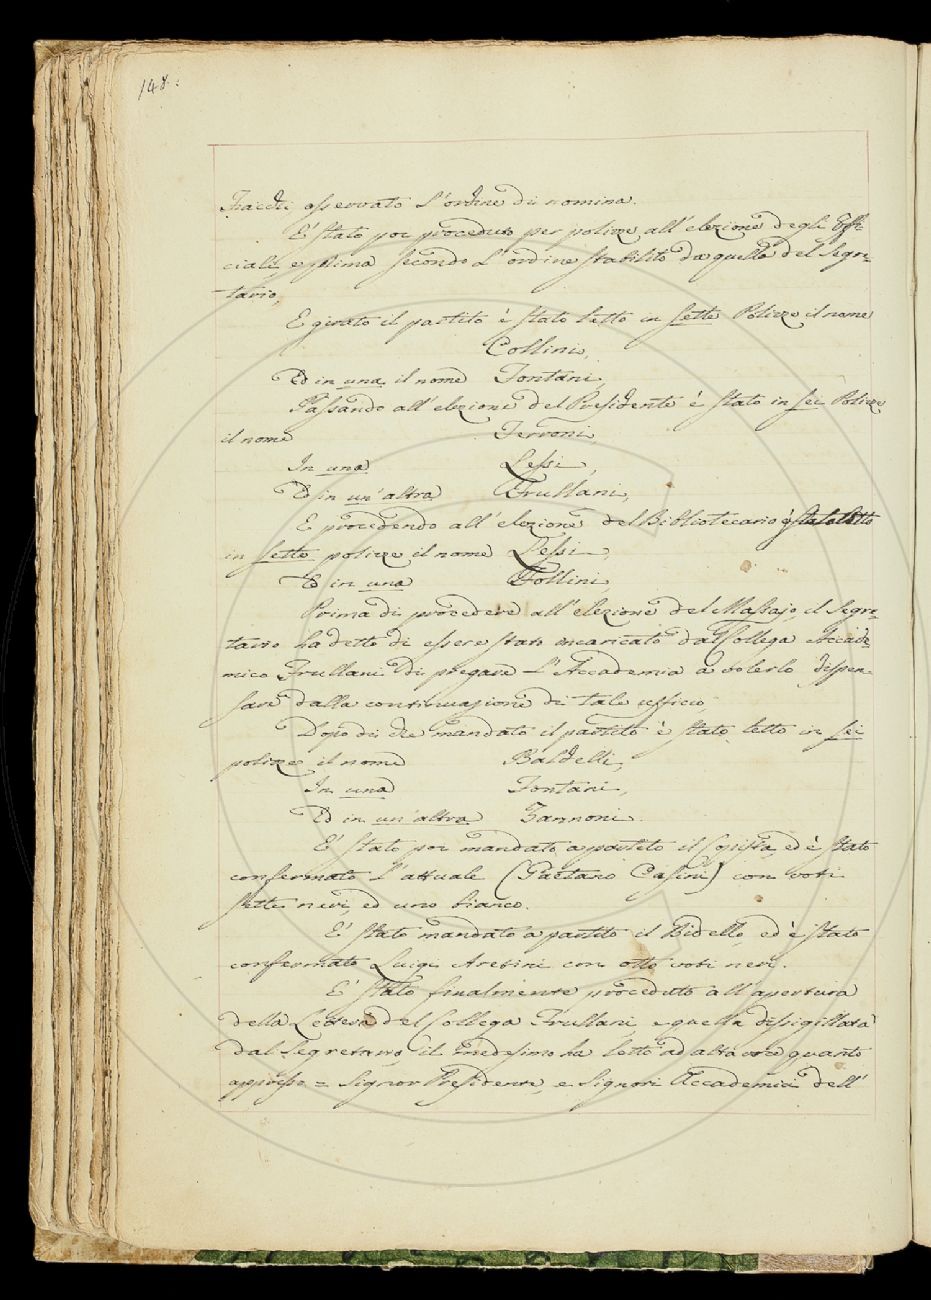 148.
osservato l'ordine di nomina.
E' stato poi proceduto per polizze all'elezione degli Offi-
ciali, e prima secondo l'ordine stabilito da quella del Segre-
tario,
E girato il partito è stato letto in sette Polizze il nome
Collini,
Ed in una il nome Fontani,
Passando all'elezione del Presidente è stato in sei Polizze
il nome Ferroni,
In una Lessi,
E in un'altra Frullani,
E procedendo all'elezione del Bibliotecario è stato letto
in sette polizze il nome Lessi
E in una Follini
Prima di procedere all'elezione del Massajo, il Segre-
tario ha detto di essere stato incaricato dal Collega Accade-
mico Frullani di pregare l'Accademia a volerlo dispen-
sare dalla continuazione di tale ufficio,
Dopo di che mandato il partito è stato letto in sei
polizze il nome Baldelli,
In una Fontani,
Ed in un'altra Zannoni.
E' stato poi mandato a partito il Copista, ed è stato
confermato l'attuale (Gaetano Casini) con voti
sette neri, ed uno bianco.
E' stato mandato a partito il Bidello, ed è stato
confermato Luigi Aretini con otto voti neri.
E' stato finalmente proceduto all'apertura
della Lettera del Collega Frullani, e quella dissigillata
dal Segretario, il medesimo ha letto ad alta voce quanto
appresso = Signor Presidente, e Signori Accademici dell'